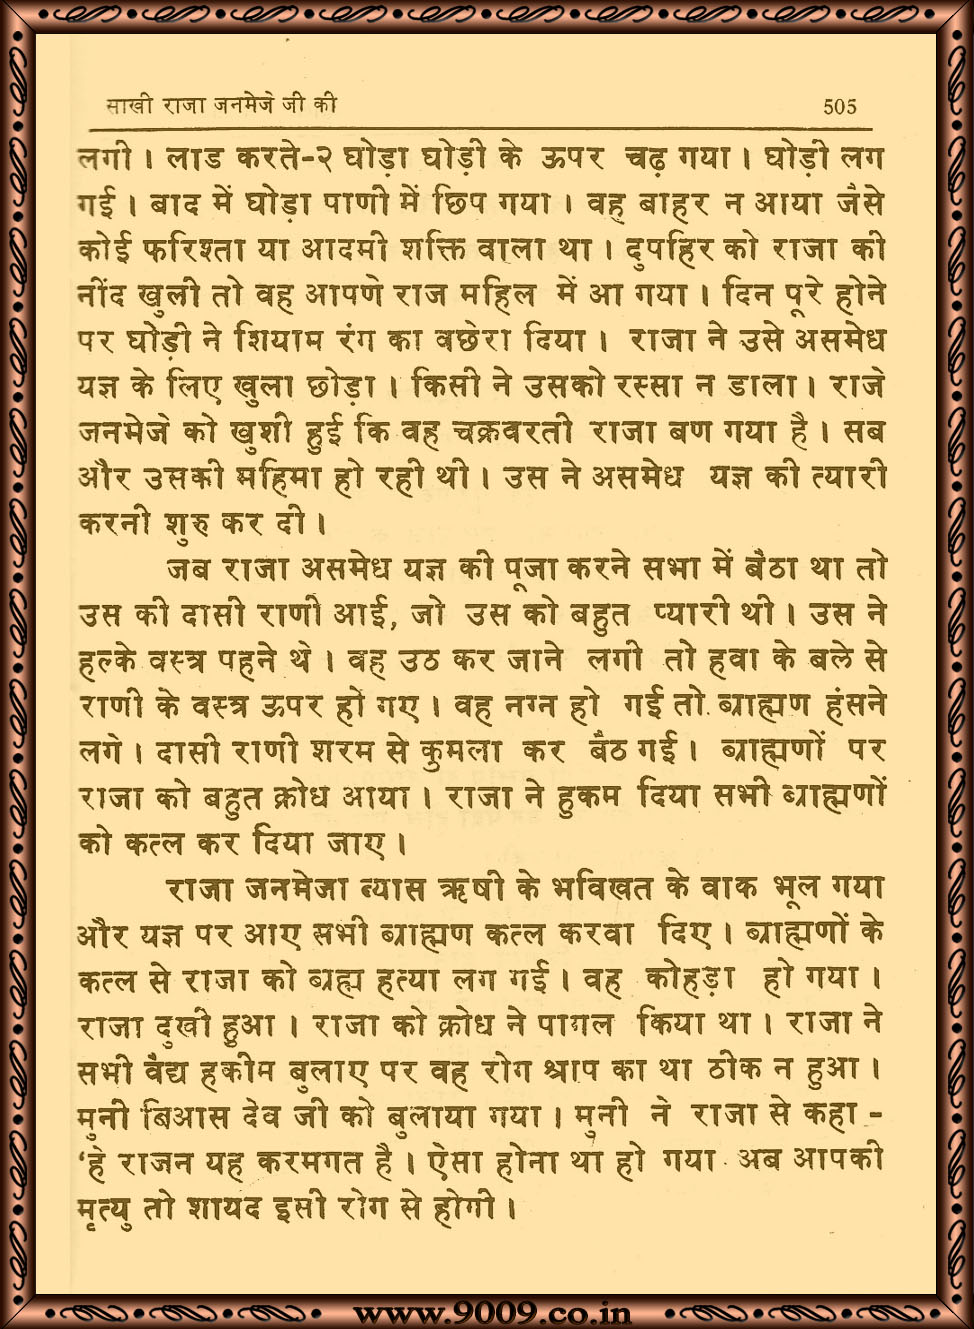 साखी राजा जनमेजे जी की 505
लगी । लाड करते-२ घोड़ा घोड़ी के ऊपर चढ़ गया । घोड़ी लग
गई । बाद में घोड़ा पाणी में छिप गया । वह बाहर न आया जैसे
कोई फरिश्ता या आदमी शक्ति वाला था । दुपहिर को राजा की
नींद खुली तो वह आपणे राज महिल में आ गया । दिन पूरे होने
पर घोड़ी ने शियाम रंग का वछेरा दिया । राजा ने उसे असमेध
यज्ञ के लिए खुला छोड़ा । किसी ने उसको रस्सा न डाला । राजे
जनमेजे को खुशी हुई कि वह चक्रवरती राजा बण गया है । सब
और उसकी महिमा हो रही थी । उस ने असमेध यज्ञ की त्यारी
करनी शुरु कर दी ।
जब राजा असमेध यज्ञ की पूजा करने सभा में बैठा था तो
उस की दासी राणी आई, जो उस को बहुत प्यारी थी । उस ने
हल्के वस्त्र पहने थे । वह उठ कर जाने लगी तो हवा के बले से
राणी के वस्त्र ऊपर हो गए । वह नग्न हो गई तो ब्राह्मण हंसने
लगे । दासी राणी शरम से कुमला कर बैठ गई । ब्राह्मणों पर
राजा को बहुत क्रोध आया । राजा ने हुकम दिया सभी ब्राह्मणों
को कत्ल कर दिया जाए ।
राजा जनमेजा ब्यास ऋषी के भविखत के वाक भूल गया
और यज्ञ पर आए सभी ब्राह्मण कत्ल करवा दिए । ब्राह्मणों के
कत्ल से राजा को ब्रह्म हत्या लग गई । वह कोहड़ा हो गया ।
राजा दुखी हुआ । राजा को क्रोध ने पागल किया था । राजा ने
सभी वैद्य हकीम बुलाए पर वह रोग श्राप का था ठीक न हुआ ।
मुनी बिआस देव जी को बुलाया गया । मुनी ने राजा से कहा -
‘हे राजन यह करमगत है । ऐसा होना था हो गया अब आपकी
मृत्यु तो शायद इसी रोग से होगी ।
www.9009.co.in